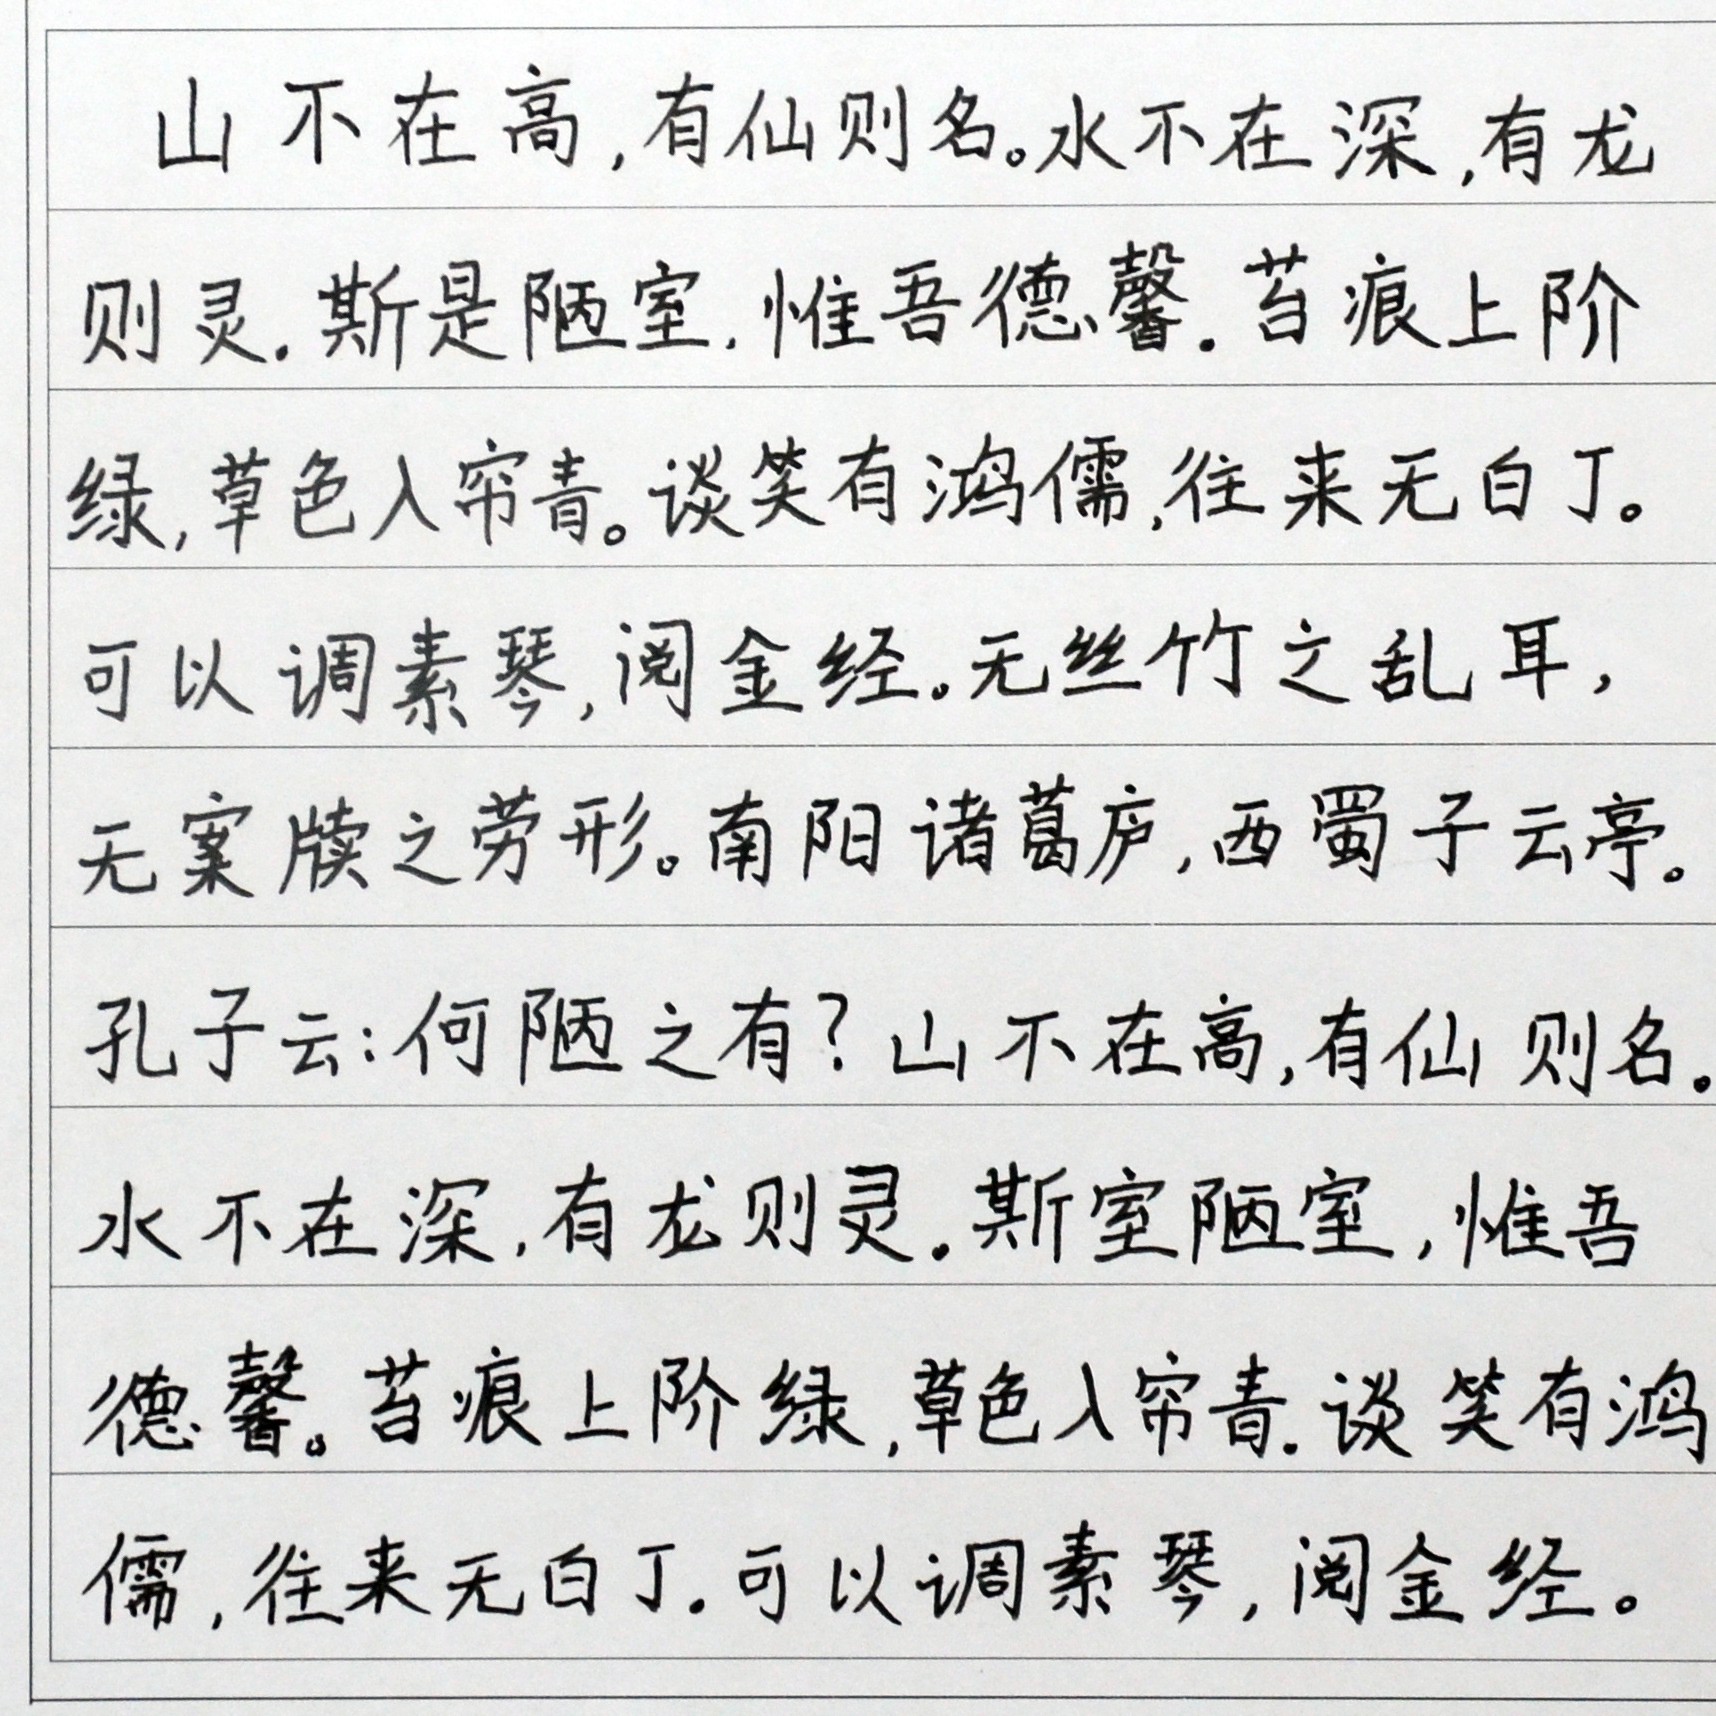 山不在高,有仙则名。水不在深,有龙
则灵.斯是陋室,惟吾德馨.苔痕上阶
绿,草色入帘青。谈笑有鸿儒,往来无白丁。
可以调素琴,阅金经。无丝竹之乱耳,
无案牍之劳形。南阳诸葛庐,西蜀子云亭。
孔子云:何陋之有?山不在高,有仙则名.
水不在深,有龙则灵.斯室陋室,惟吾
德馨。苔痕上阶绿,草色入帘青.谈笑有鸿
儒,往来无白丁.可以调素琴,阅金经。